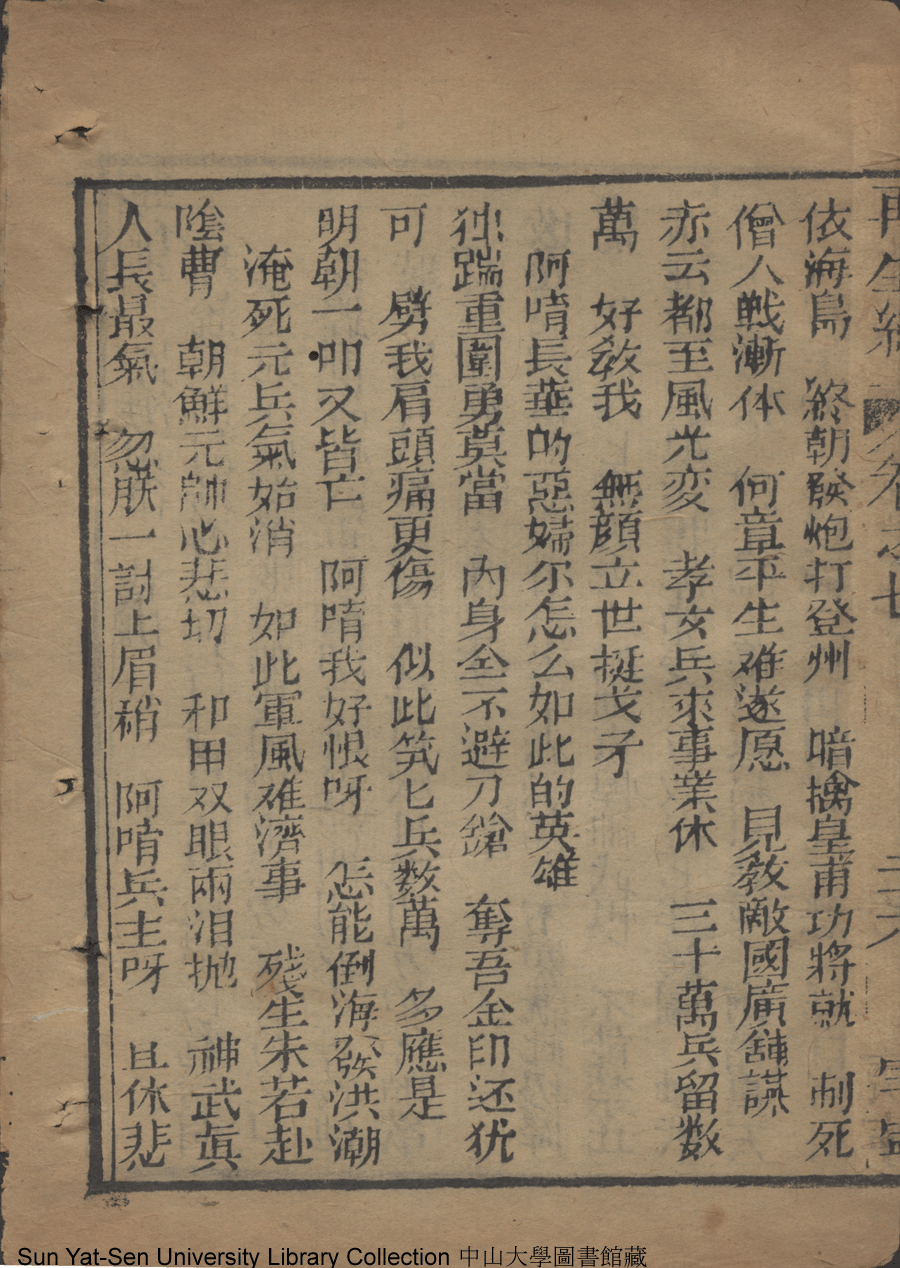 再生緣 卷之七 二六
依海島 終朝發炮打登州 暗擒皇甫功將就 刺死
僧人戰漸休 何章平生难遂愿 見教敵國廣舖謀
亦云都至風光变 孝女兵來事業休 三十萬兵留数
萬 好教我 無顔立世挺戈矛
阿唷長華的惡婦尔怎么如此的英雄
独踹重圍勇莫當 內身全不避刀鎗 奪吾金印还犹
可 劈我肩頭痛更傷 似此筑匕兵数萬 多應是
明朝一叩又皆亡 阿唷我好恨呀 怎能倒海發洪潮
淹死元兵氣始消 如此軍風难濟事 殘生朱若赴
陰曹 朝鮮元帥心悲切 和甲双眼兩泪抛 神武真
人長最氣 忽朕一討上眉稍 阿唷兵主呀 且休悲
Sun Yat-Sen University Library Collection 中山大學圖書館藏